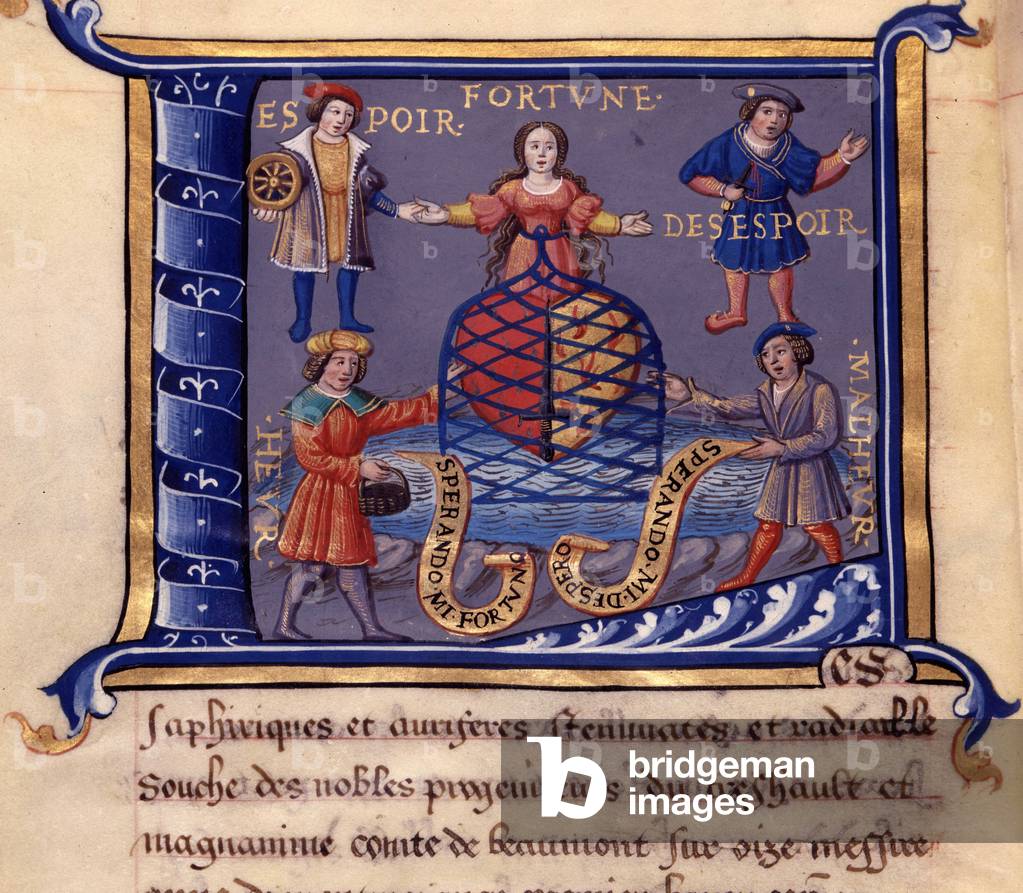 ESPOIR·
FORTVNE·
DESESPOIR
·HEVR·
·MALHEVR
SPERANDO·MI·FORTVNO
SPERANDO·MI·DESPERO
CS
saphiriques et auriferes et
Souche des nobles et
magnanime comte de beaumont sur oize messire
bridgeman
images